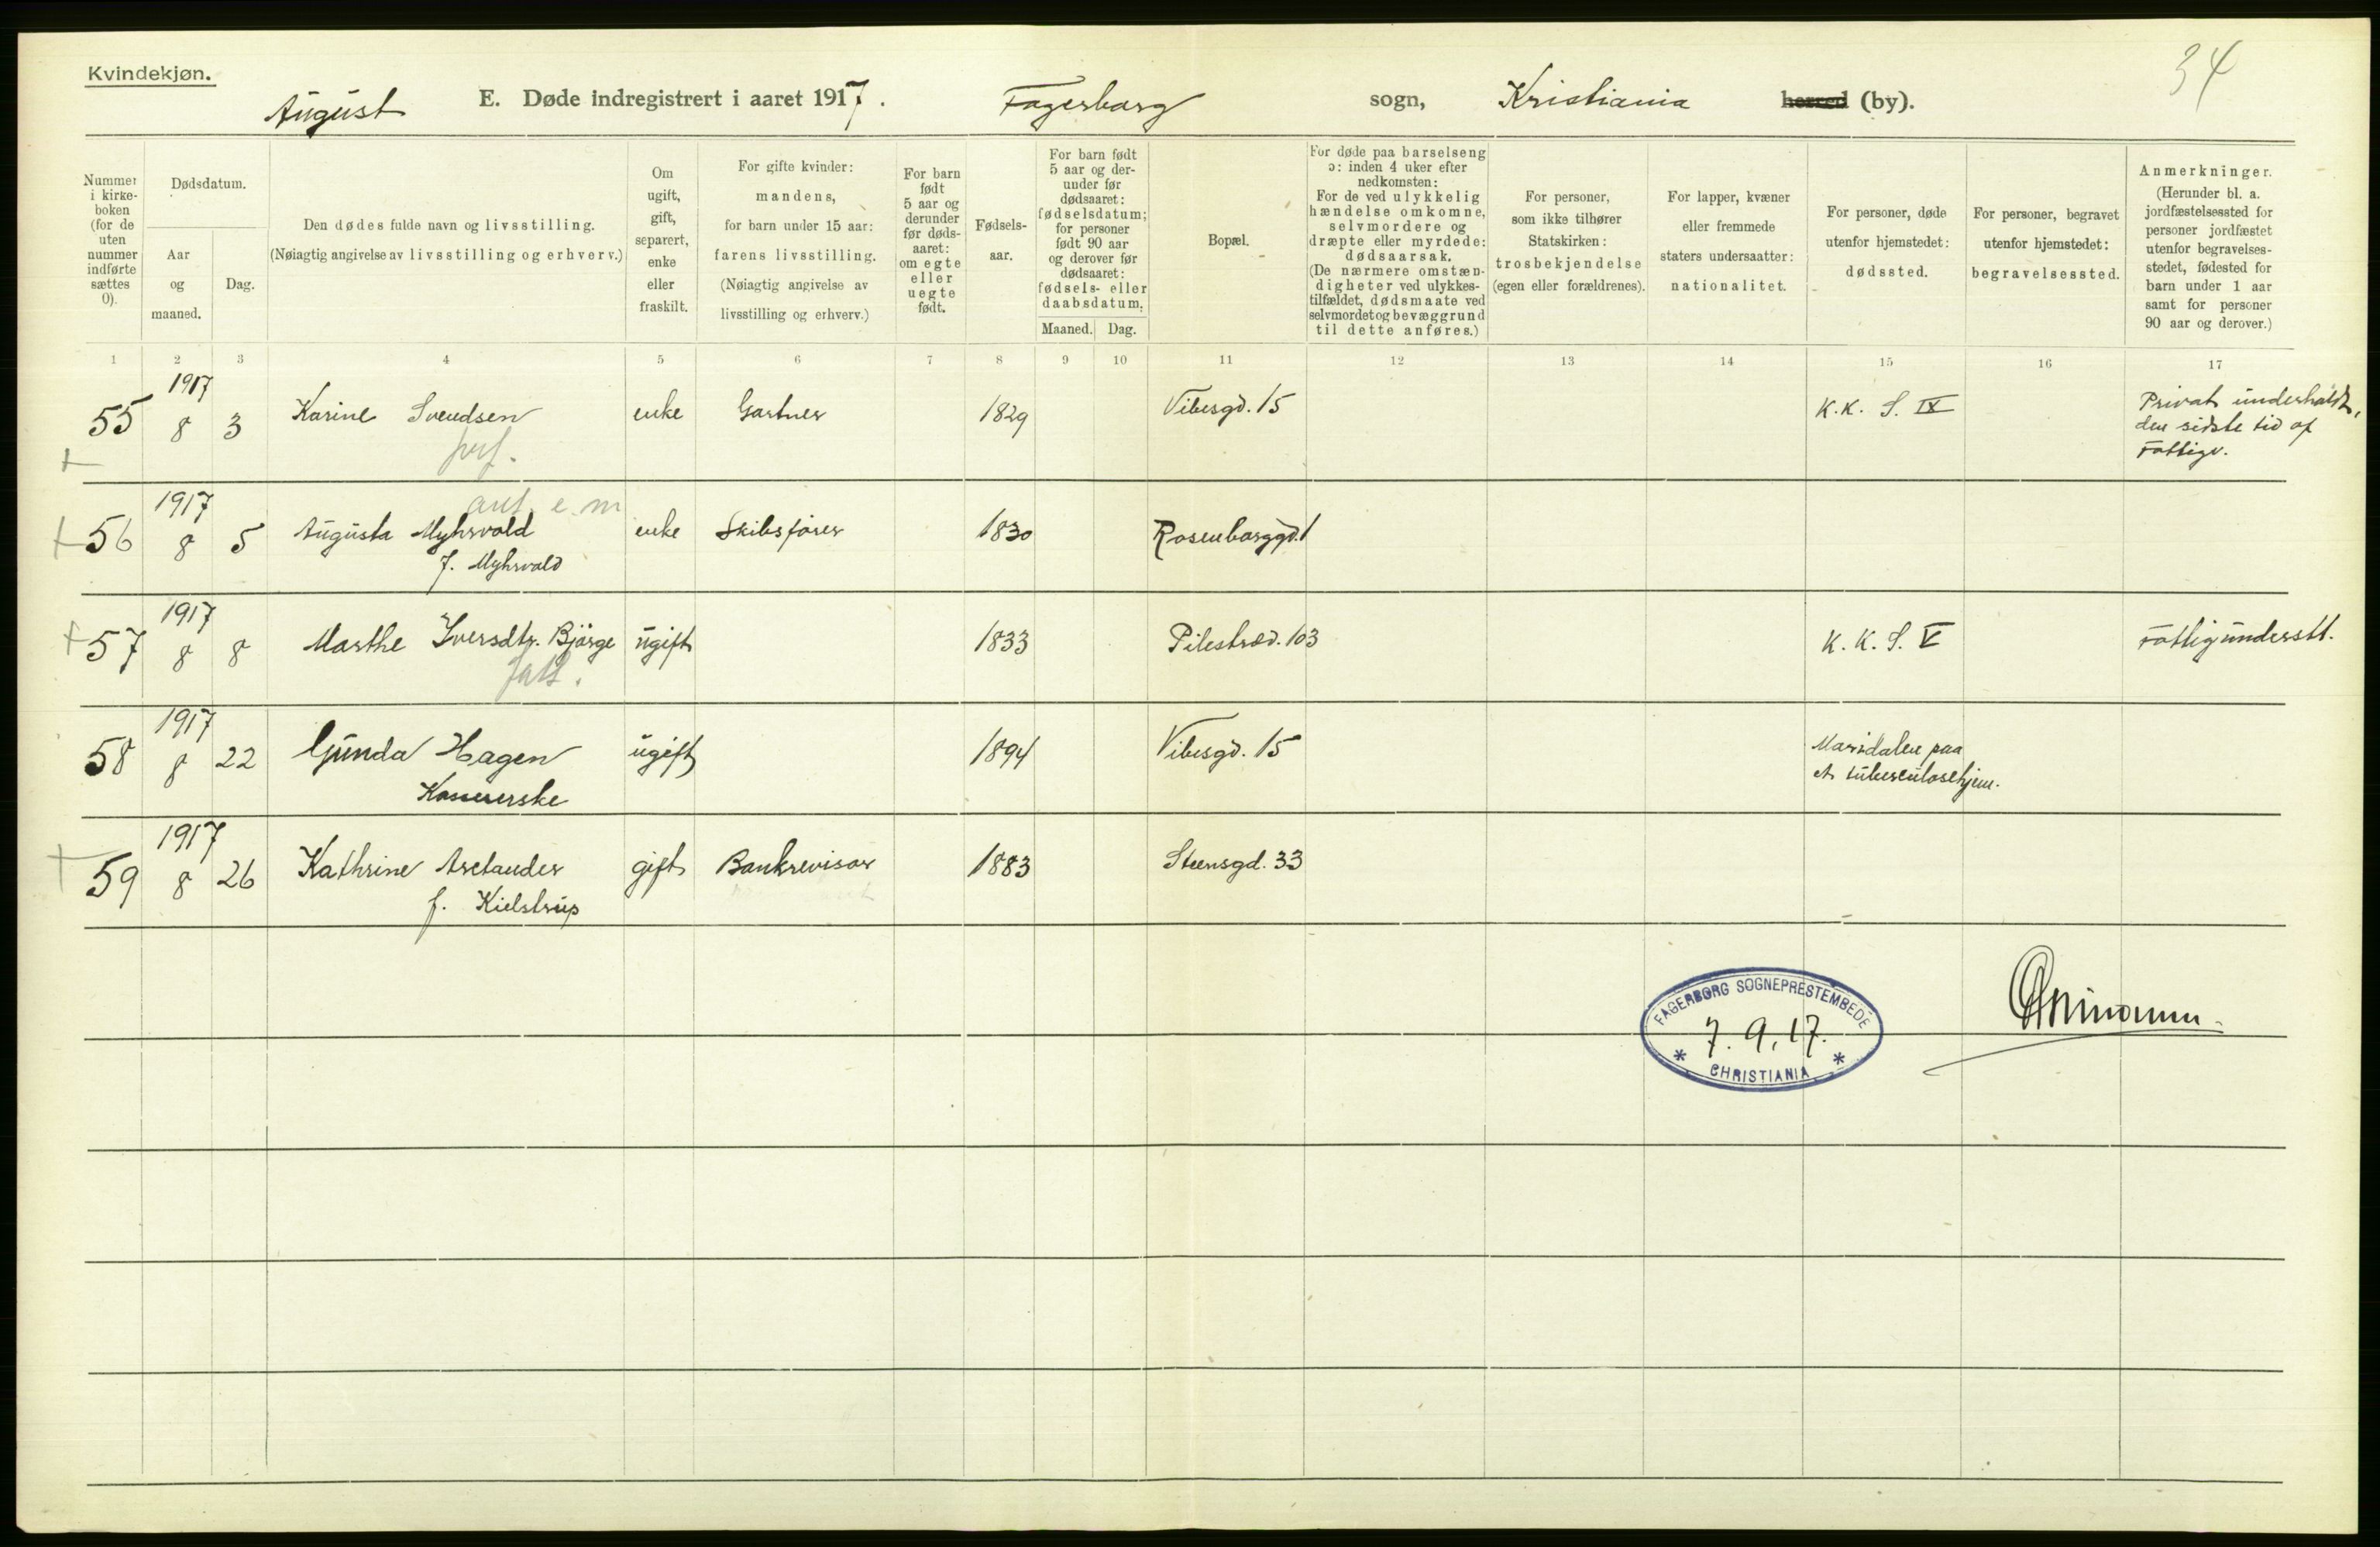 Kvindekjøn.
34
August E. Døde indregistrert i aaret 1917. Fagerborg sogn, Kristiania herred (by).
Nummer i kirke-boken (for de uten nummer indførte sættes 0).
Dødsdatum.
Aar og maaned.
Dag.
Den dødes fulde navn og livsstilling.
(Nøiagtig angivelse av livsstilling og erhverv.)
Om ugift, gift, separert, enke eller fraskilt.
For gifte kvinder: mandens, for barn under 15 aar: farens livsstilling. (Nøiagtig angivelse av livsstilling og erhverv.)
For barn født 5 aar og derunder før døds-aaret: om egte eller uegte født.
Fødsels-aar.
For barn født 5 aar og der-under før dødsaaret: fødselsdatum; for personer født 90 aar og derover før dødsaaret: fødsels- eller daabsdatum.
Maaned. Dag.
Bopæl.
For døde paa barselseng ɔ: inden 4 uker efter nedkomsten: For de ved ulykkelig hændelse omkomne, selvmordere og dræpte eller myrdede: dødsaarsak. (De nærmere omstæn-digheter ved ulykkes-tilfældet, dødsmaate ved selvmordet og bevæggrund til dette anføres.)
For personer, som ikke tilhører Statskirken: trosbekjendelse (egen eller forældrenes).
For lapper, kvæner eller fremmede staters undersaatter: nationalitet.
For personer, døde utenfor hjemstedet: dødssted.
For personer, begravet utenfor hjemstedet: begravelsessted.
Anmerkninger. (Herunder bl. a. jordfæstelsessted for personer jordfæstet utenfor begravelses-stedet, fødested for barn under 1 aar samt for personer 90 aar og derover.)
1 2 3 4 5 6 7 8 9 10 11 12 13 14 15 16 17
1917
55 8 3 Karine Svendsen enke Gartner 1829 Vibesgd. 15 K.K. S. IX Privat underholdt,
den sidste tid af
Fattigv.
1917
56 8 5 Augusta Myhrvold enke Skibsfører 1830 Rosenborggd. 1
f. Myhrvold
1917
57 8 8 Marthe Iversdtr. Bjørge ugift 1833 Pilestræd. 103 K. K. S. V Fattigunderstt.
1917
58 8 22 Gunda Hagen ugift 1894 Vibesgd. 15 Maridalen paa
et tuberculosehjem.
1917
59 8 26 Kathrine Arelander gift Bankrevisor 1883 Steensgd. 33
f. Kielstrup
FAGERBORG SOGNEPRESTEMBEDE
* 7. 9. 17. *
CHRISTIANIA